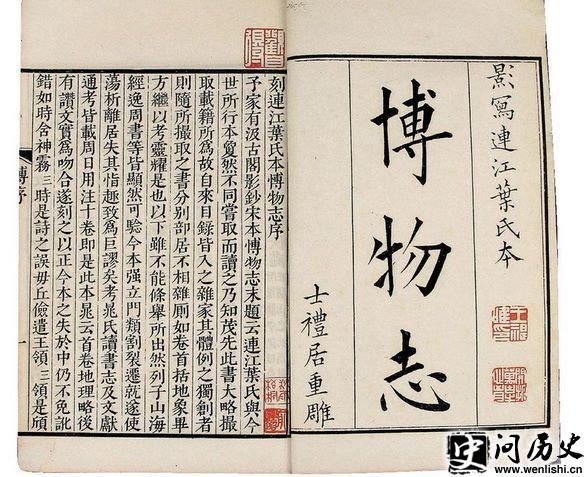 影寫連江葉氏本
博物志
士禮居重雕
刻連江葉氏本博物志序
予家有汲古閣影鈔宋本博物志末題云連江葉氏與今
世所行本夐然不同嘗取而讀之乃知茂先此書大略撮
取載籍所為故自來目錄皆入之雜家其體例之獨創者
則隨所撮取之書分別部居不相雜厠如卷首括地象畢
方繼以考靈耀是也以下雖不能條舉所出然列子山海
經逸周書等皆顯然可驗今本强立門類割裂遷就遂使
蕩析離居失其指趣致為巨謬矣考晁氏讀書志及文獻
通考皆載周日用注十卷即是此本晁云首卷地理略後
有讚文實為吻合遂刻之以正今本之失於中仍不免訛
錯如時含神霧三時是詩之誤毋丘儉遣王領三領是頎
博序
一
史
问历史
www.wenlishi.cn